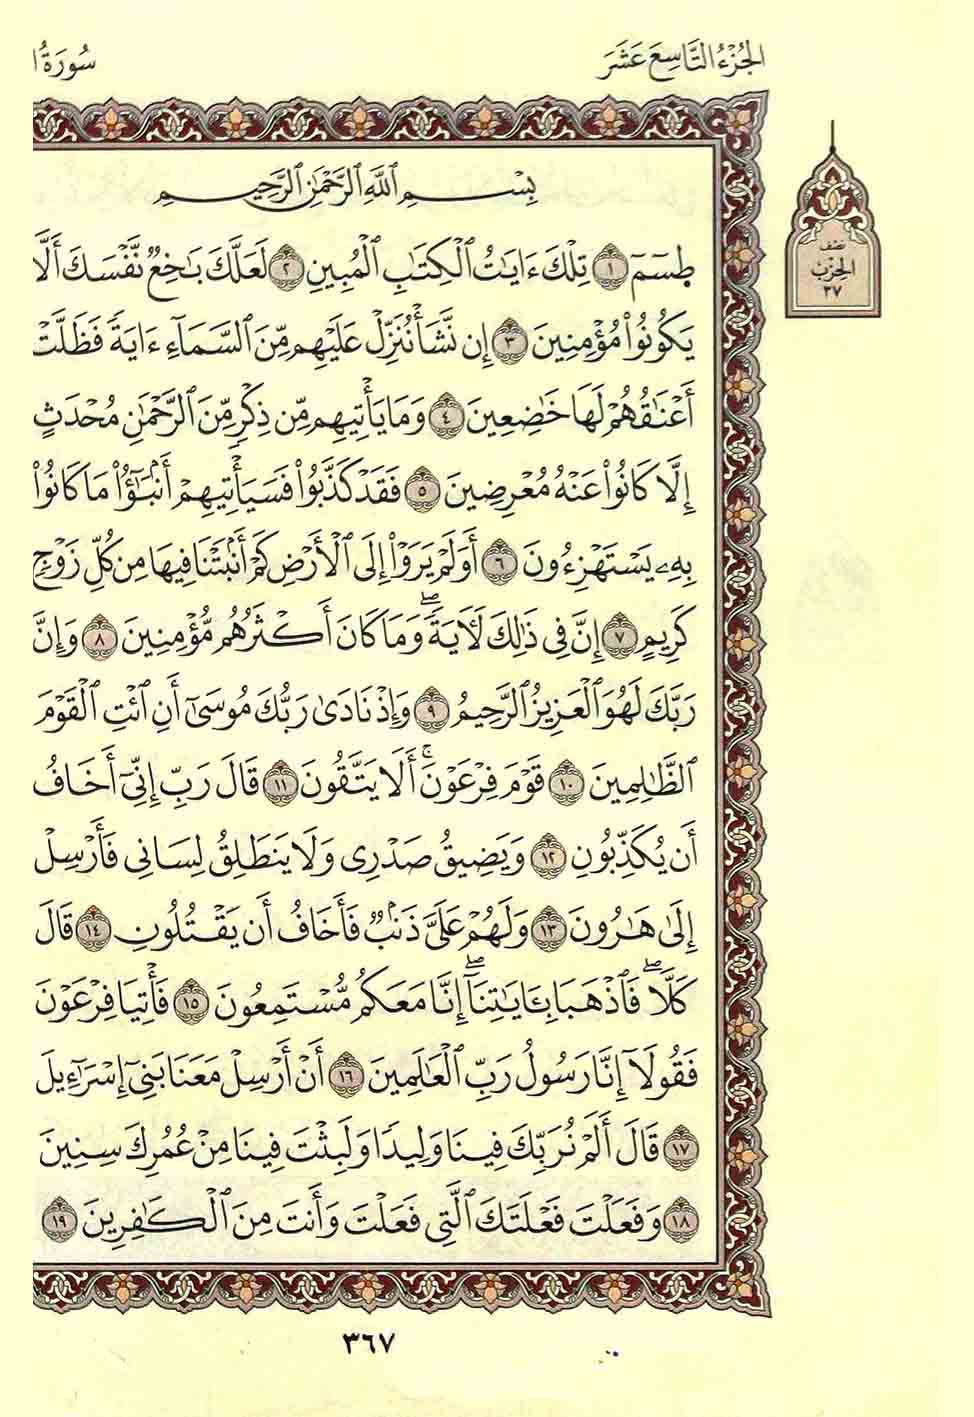 الجُزْءُ التَّاسِعَ عَشَرَ
سُورَةُ ا
نصف
الحِزْب
٣٧
بِسْمِ ٱللَّهِ ٱلرَّحْمَٰنِ ٱلرَّحِيمِ
طسٓمٓ ١ تِلْكَ ءَايَٰتُ ٱلْكِتَٰبِ ٱلْمُبِينِ ٢ لَعَلَّكَ بَٰخِعٌ نَّفْسَكَ أَلَّا
يَكُونُوا۟ مُؤْمِنِينَ ٣ إِن نَّشَأْ نُنَزِّلْ عَلَيْهِم مِّنَ ٱلسَّمَآءِ ءَايَةً فَظَلَّتْ
أَعْنَٰقُهُمْ لَهَا خَٰضِعِينَ ٤ وَمَا يَأْتِيهِم مِّن ذِكْرٍ مِّنَ ٱلرَّحْمَٰنِ مُحْدَثٍ
إِلَّا كَانُوا۟ عَنْهُ مُعْرِضِينَ ٥ فَقَدْ كَذَّبُوا۟ فَسَيَأْتِيهِمْ أَنۢبَٰٓؤُا۟ مَا كَانُوا۟
بِهِۦ يَسْتَهْزِءُونَ ٦ أَوَلَمْ يَرَوْا۟ إِلَى ٱلْأَرْضِ كَمْ أَنۢبَتْنَا فِيهَا مِن كُلِّ زَوْجٍ
كَرِيمٍ ٧ إِنَّ فِى ذَٰلِكَ لَءَايَةً ۖ وَمَا كَانَ أَكْثَرُهُم مُّؤْمِنِينَ ٨ وَإِنَّ
رَبَّكَ لَهُوَ ٱلْعَزِيزُ ٱلرَّحِيمُ ٩ وَإِذْ نَادَىٰ رَبُّكَ مُوسَىٰٓ أَنِ ٱئْتِ ٱلْقَوْمَ
ٱلظَّٰلِمِينَ ١٠ قَوْمَ فِرْعَوْنَ ۚ أَلَا يَتَّقُونَ ١١ قَالَ رَبِّ إِنِّىٓ أَخَافُ
أَن يُكَذِّبُونِ ١٢ وَيَضِيقُ صَدْرِى وَلَا يَنطَلِقُ لِسَانِى فَأَرْسِلْ
إِلَىٰ هَٰرُونَ ١٣ وَلَهُمْ عَلَىَّ ذَنۢبٌ فَأَخَافُ أَن يَقْتُلُونِ ١٤ قَالَ
كَلَّا ۖ فَٱذْهَبَا بِـَٔايَٰتِنَآ ۖ إِنَّا مَعَكُم مُّسْتَمِعُونَ ١٥ فَأْتِيَا فِرْعَوْنَ
فَقُولَآ إِنَّا رَسُولُ رَبِّ ٱلْعَٰلَمِينَ ١٦ أَنْ أَرْسِلْ مَعَنَا بَنِىٓ إِسْرَٰٓءِيلَ
١٧ قَالَ أَلَمْ نُرَبِّكَ فِينَا وَلِيدًا وَلَبِثْتَ فِينَا مِنْ عُمُرِكَ سِنِينَ
١٨ وَفَعَلْتَ فَعْلَتَكَ ٱلَّتِى فَعَلْتَ وَأَنتَ مِنَ ٱلْكَٰفِرِينَ ١٩
٣٦٧